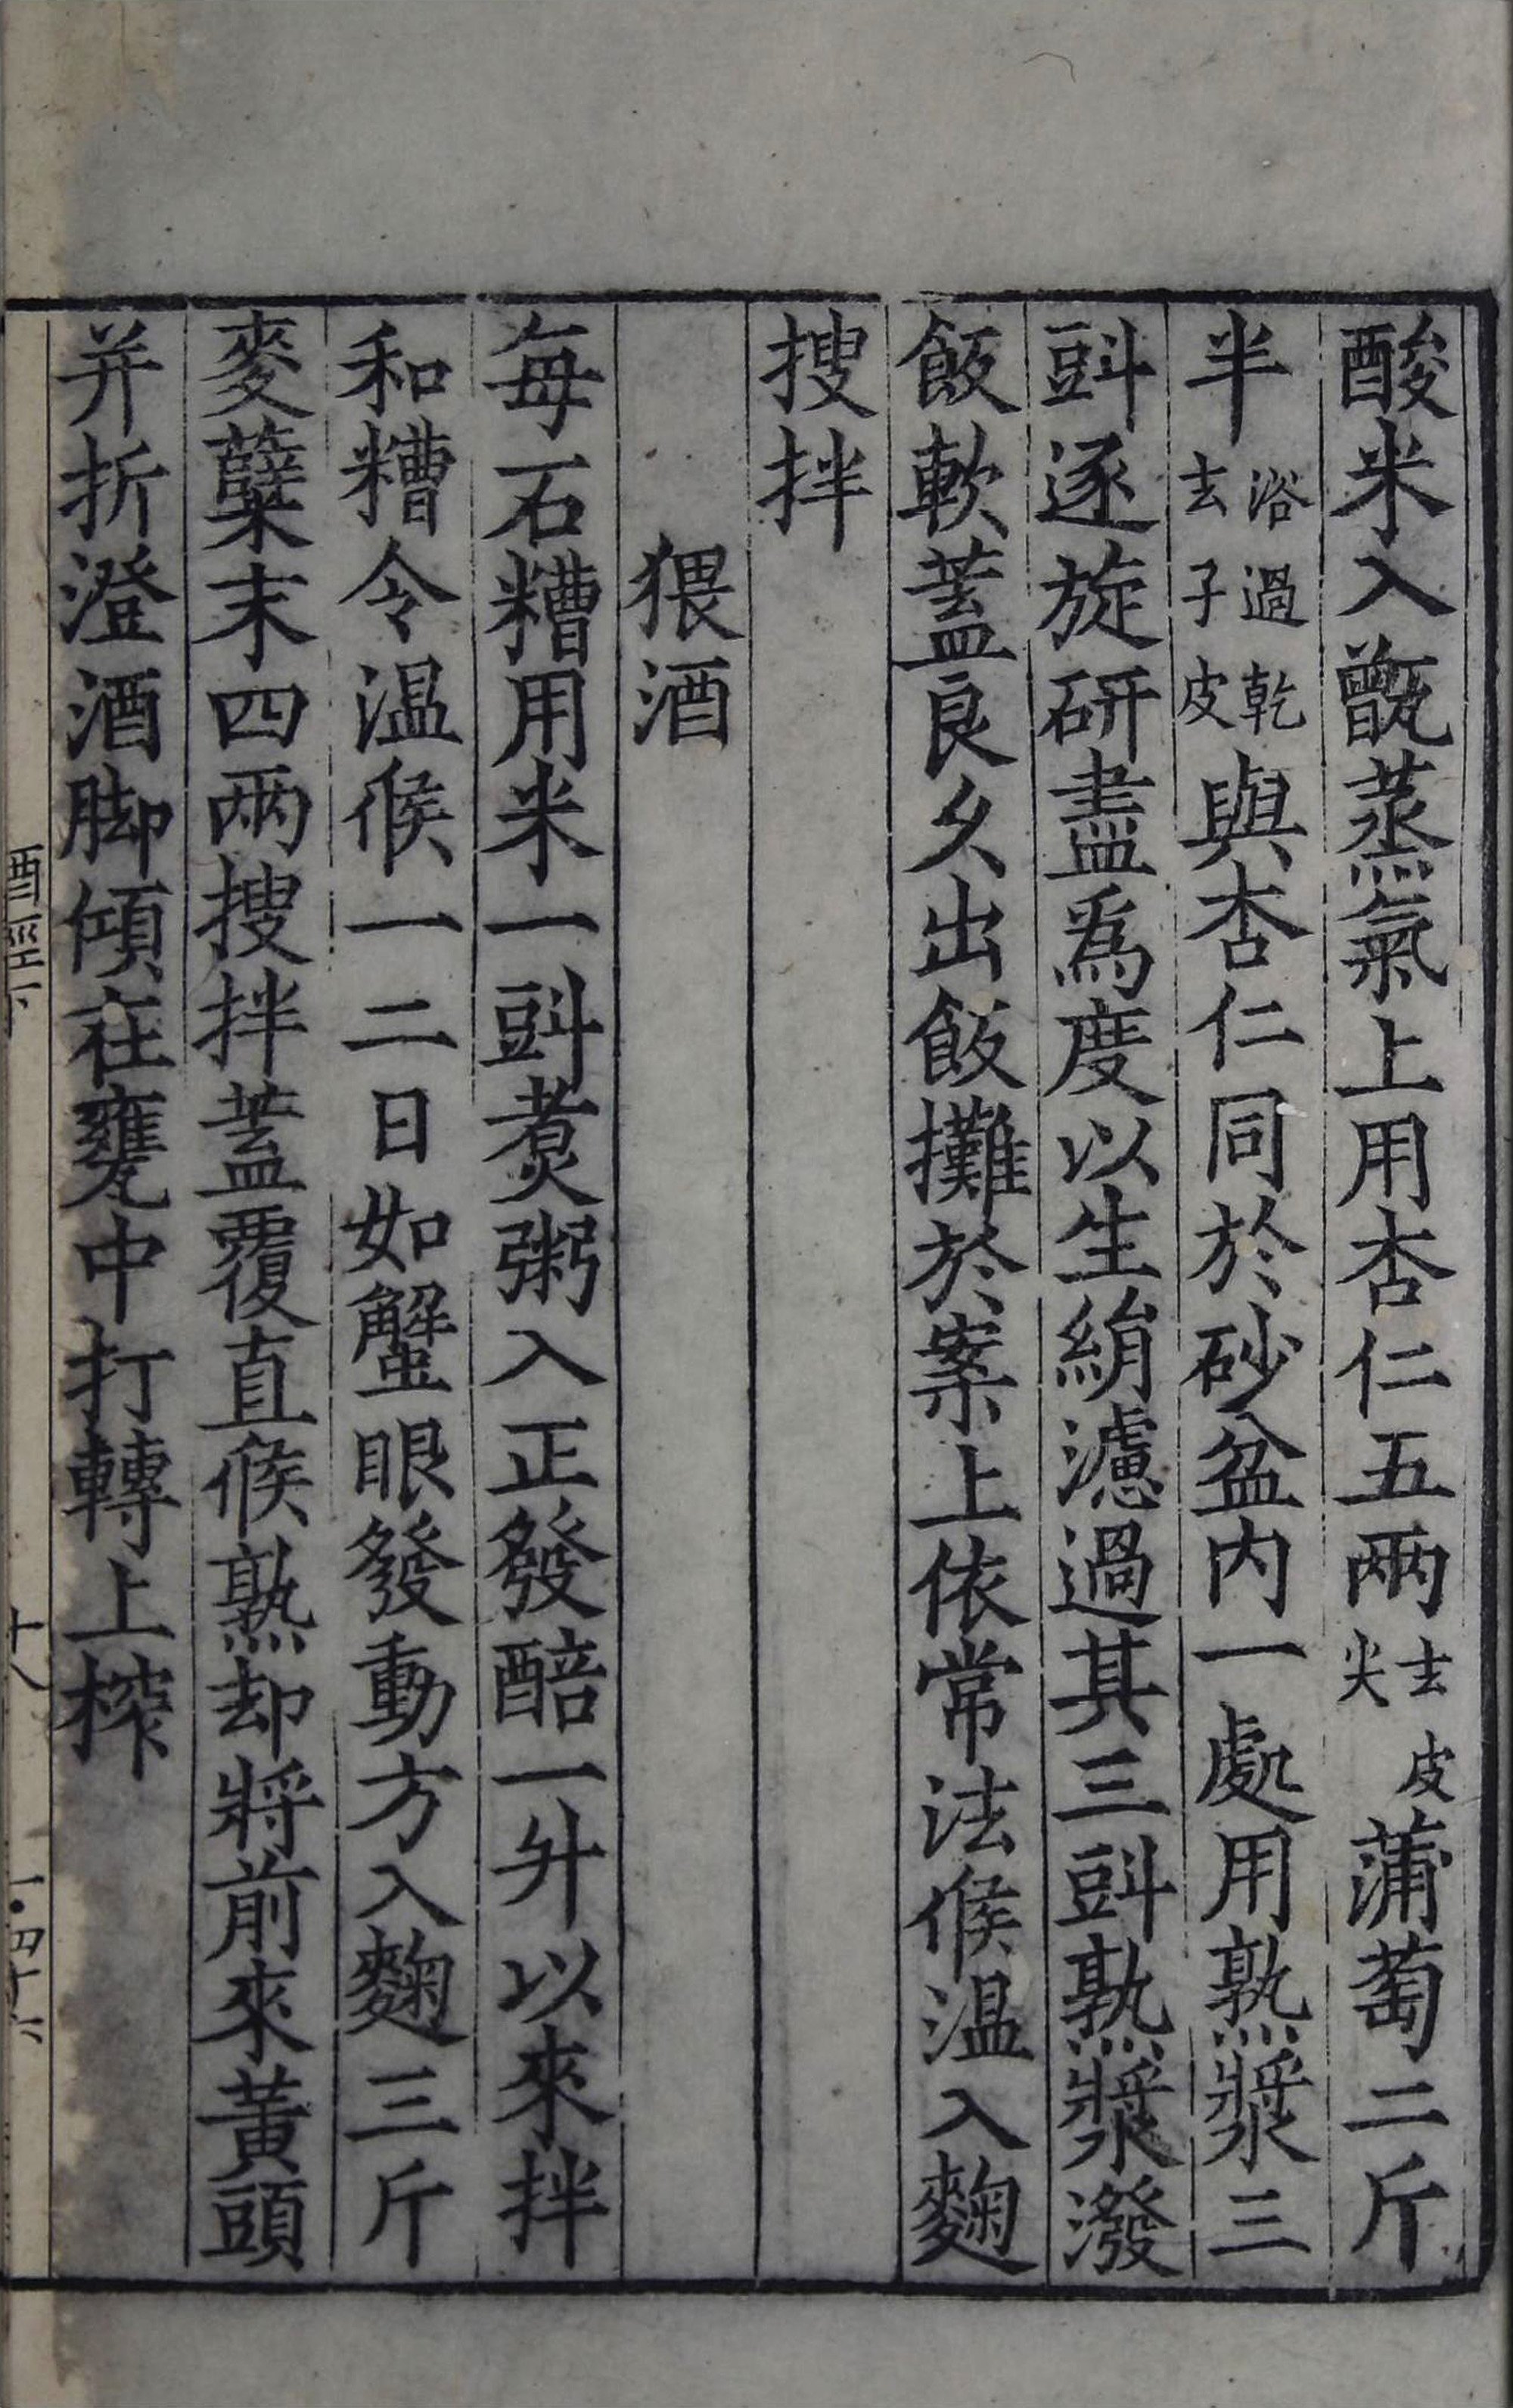 酸米入甑蒸氣上用杏仁五兩去皮尖蒲萄二斤
半浴過乾去子皮與杏仁同於砂盆内一處用熟漿三
㪷逐旋研盡爲度以生絹濾過其三㪷熟漿潑
飯軟蓋良久出飯攤於案上依常法候温入麴
搜拌
猥酒
每石糟用米一㪷煮粥入正發醅一升以來拌
和糟令温候一二日如蟹眼發動方入麴三斤
麥蘖末四兩搜拌蓋覆直候熟却將前來黃頭
并折澄酒脚傾在甕中打轉上榨
酒經下
十八